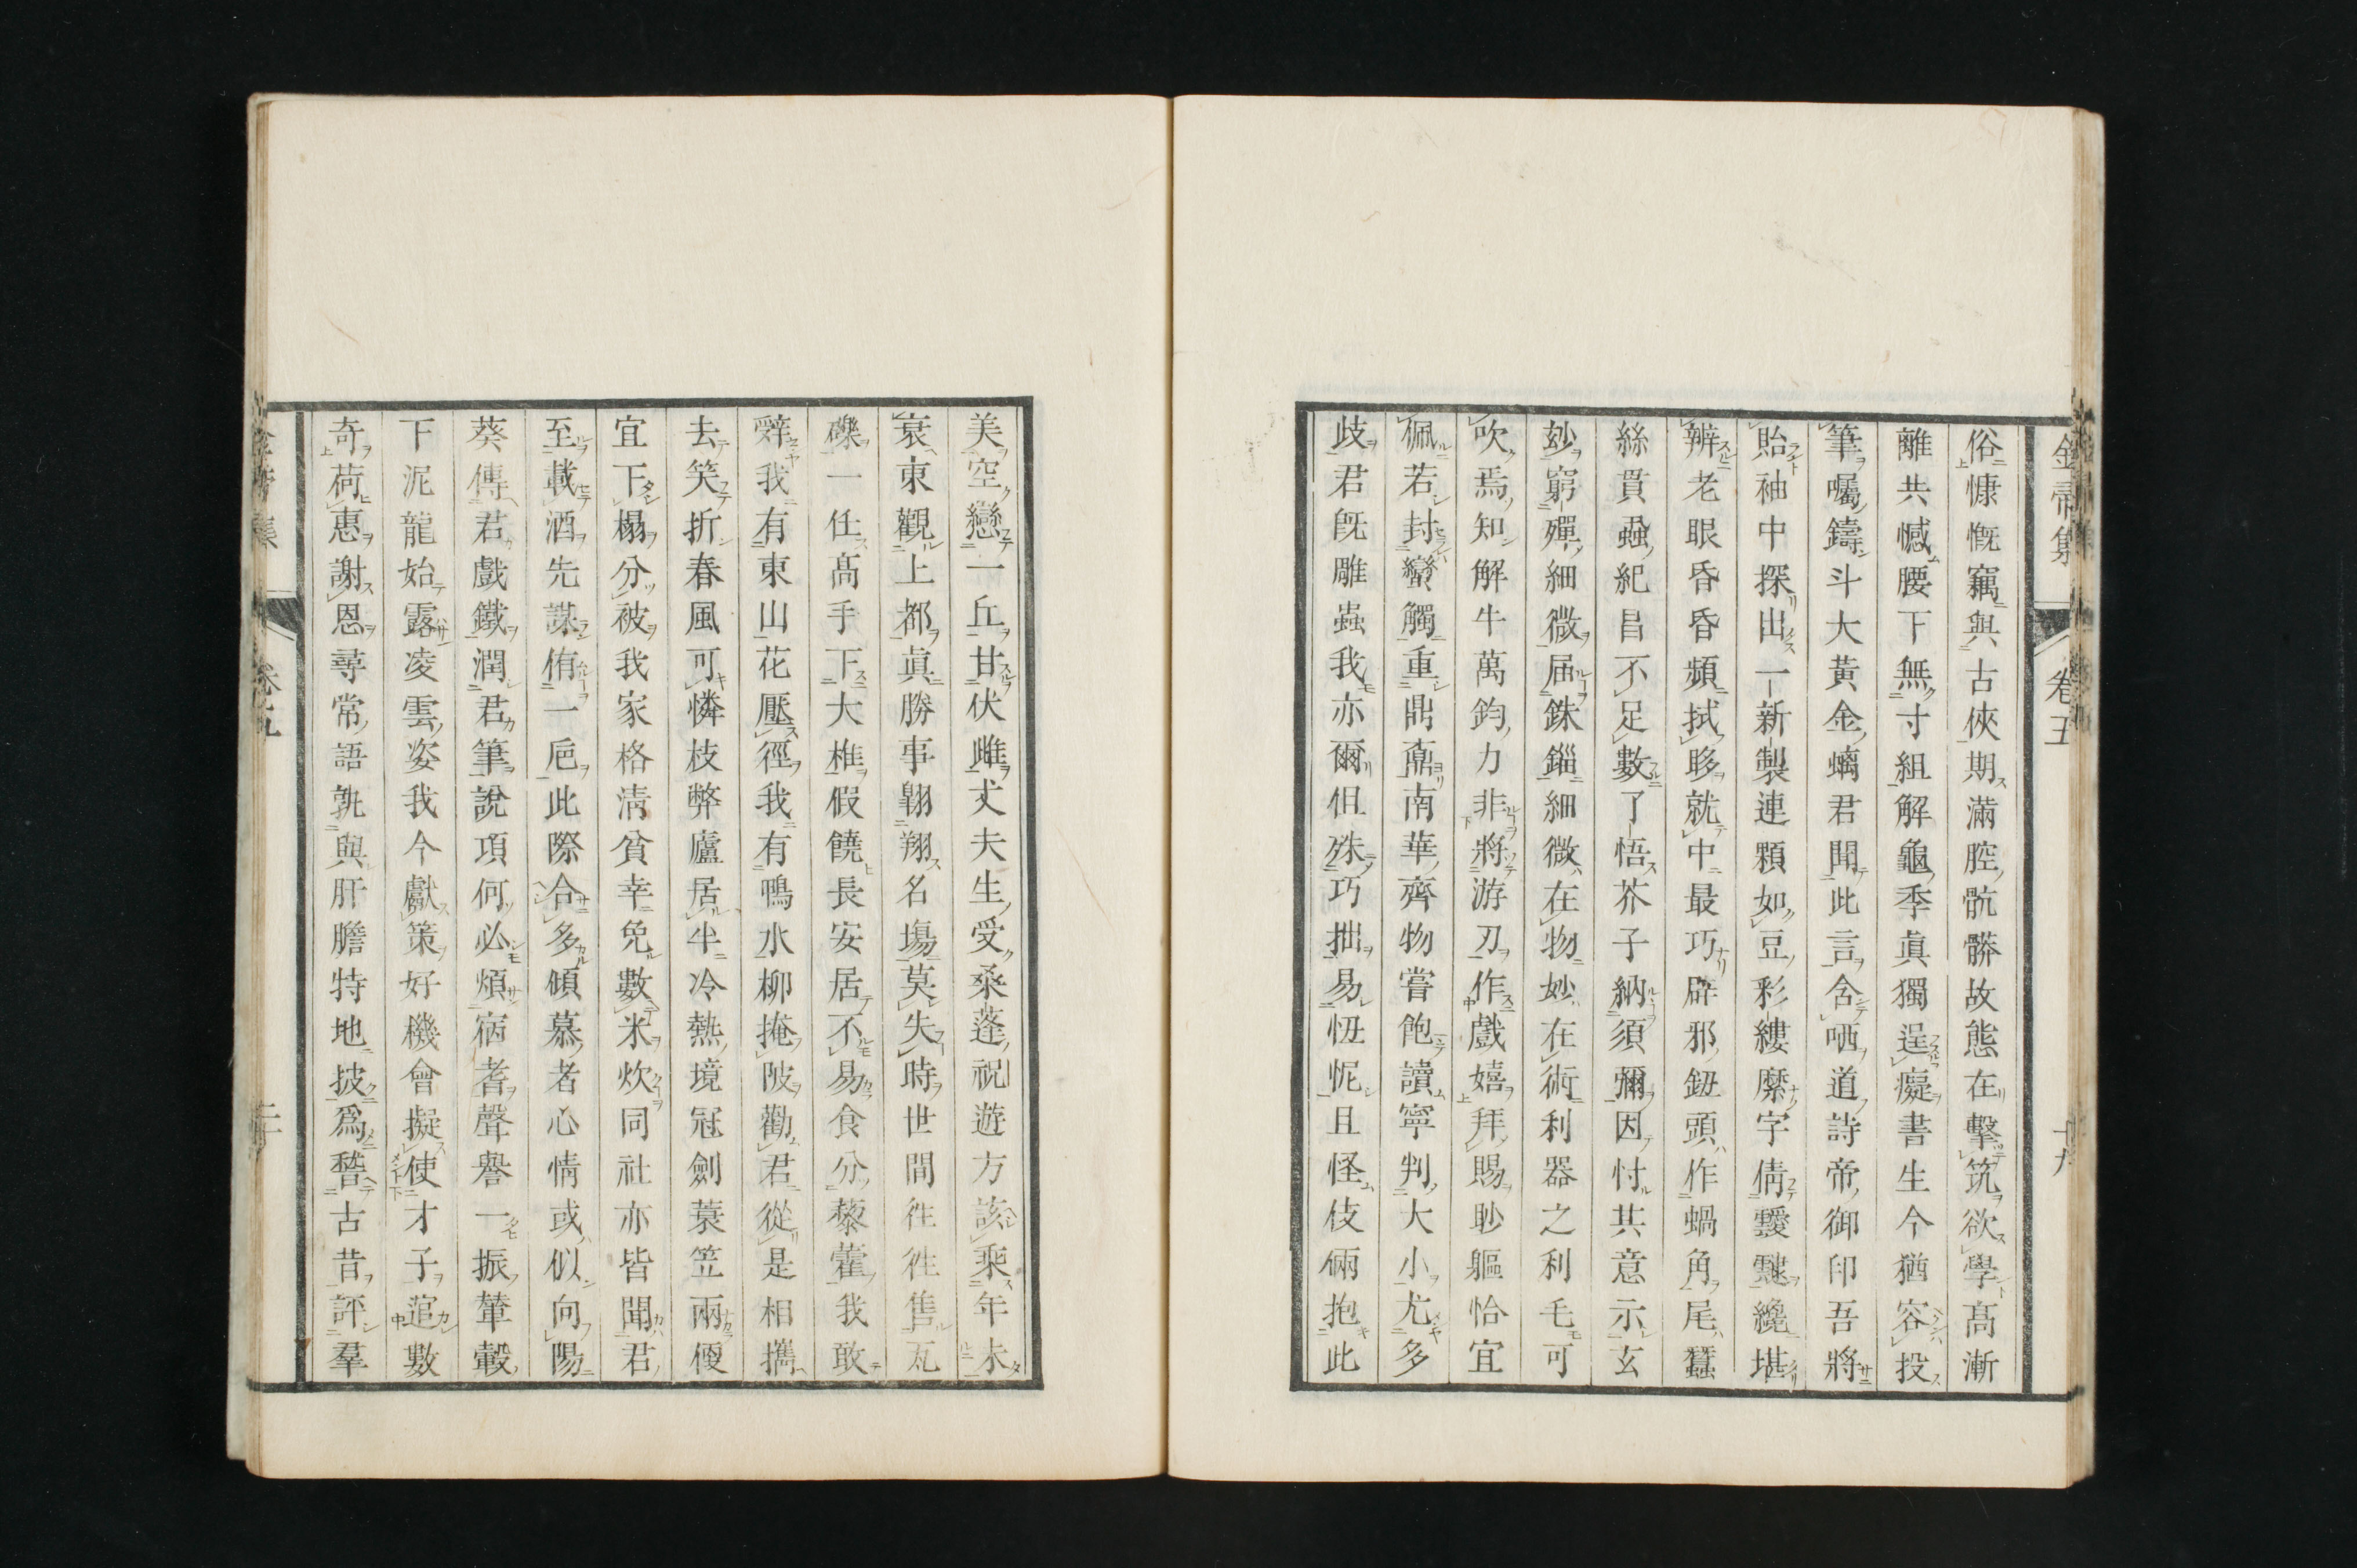 俗慷慨竊與古俠期滿腔骯髒故態在擊筑欲學髙漸
離共憾腰下無寸組解龜季眞獨逞癡書生今猶容投
筆囑鑄斗大黃金螭君聞此言含哂道詩帝御印吾將
貽袖中探出一新製連顆如豆彩縷縻字倩靉靆纔堪
辨老眼昏昏頻拭眵就中最巧辟邪鈕頭作蝸角尾蠶
絲貫蝨紀昌不足數了悟芥子納須彌因忖其意示玄
玅窮殫細微届銖錙細微在物妙在術利器之利毛可
吹焉知解牛萬鈞力非將游刃作戲嬉拜賜眇軀恰宜
佩若封蠻觸重鼎鼐南華齊物嘗飽讀寧判大小尤多
歧君旣雕蟲我亦爾但殊巧拙易忸怩且怪伎倆抱此
卷五
十九
美空戀一丘甘伏雌丈夫生受桑蓬祝遊方該乘年未
衰東觀上都眞勝事翺翔名塲莫失時世間徃徃售瓦
礫一任髙手下大椎假饒長安居不易食分藜藿我敢
辭我有東山花壓徑我有鴨水柳掩陂勸君從是相攜
去笑折春風可憐枝弊廬居半冷熱境冠劍蓑笠兩便
宜下榻分被我家格淸貧幸免數米炊同社亦皆聞君
至載酒先謀侑一巵此際合多傾慕者心情或似向陽
葵傳君戲鐵潤君筆說項何必煩病耆聲譽一振輦轂
下泥龍始露凌雲姿我今獻策好機會擬使才子萡數
奇荷惠謝恩尋常語孰與肝膽特地披爲誓古昔評羣